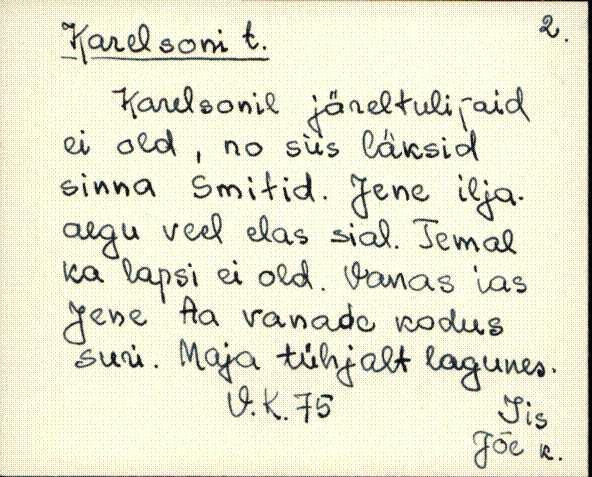 Karelsoni t.
2.
Karelsonil järeltulijaid
ei old, no siis läksid
sinna Smitid. Jene ilja-
aegu veel elas sial. Temal
ka lapsi ei old. Vanas ias
Jene Aa vanade kodus
suri. Maja tühjalt lagunes.
V.K. 75
Jis
Jõe k.